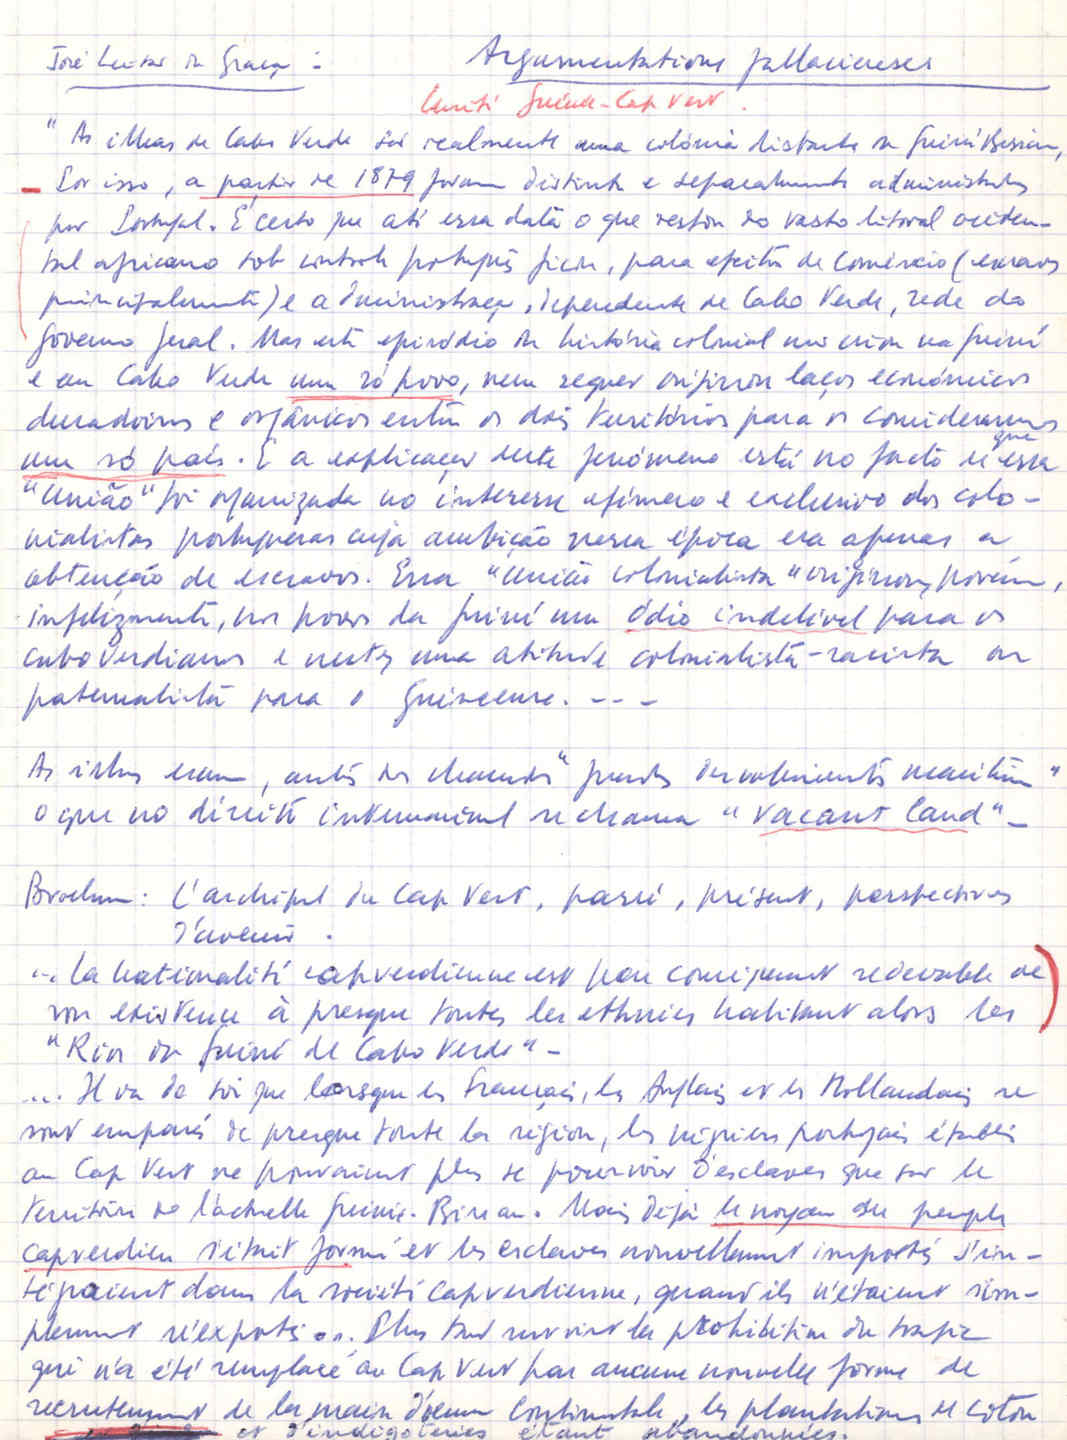 José Leitão da Graça : Argumentations fallacieuses
Unité Guinée-Cap Vert.
"As ilhas de Cabo Verde são realmente uma colónia distante da Guiné Bissau,
Por isso, a partir de 1879 foram distinta e separadamente administradas
por Portugal. É certo que até essa data o que restou do vasto litoral ociden-
tal africano sob controle português ficou, para efeitos de comércio (escravos
principalmente) e administração, dependente de Cabo Verde, sede do
governo geral. Mas este episódio da história colonial não criou na Guiné
e em Cabo Verde um só povo, nem sequer originou laços económicos
duradoiros e orgânicos entre os dois territórios para os considerarmos
um só país. E a explicação deste fenómeno está no facto de que essa
"União" foi organizada no interesse efémero e exclusivo dos colo-
nialistas portugueses cuja ambição nessa época era apenas a
obtenção de escravos. Essa "União colonialista" originou, porém,
infelizmente, nos povos da Guiné um ódio indelével para os
caboverdianos e nestes uma atitude colonialista-racista ou
paternalista para o Guineense. ---
As ilhas eram, antes dos chamados "grandes descobrimentos marítimos"
o que no direito internacional se chama "vacant land" -
Brochure : L'archipel du Cap Vert, passé, présent, perspectives
d'avenir.
... la nationalité capverdienne est par conséquent redevable de
son existence à presque toutes les ethnies habitant alors les
"Rios da Guiné de Cabo Verde" -
... Il va de soi que lorsque les Français, les Anglais et les Hollandais se
sont emparés de presque toute la région, les négriers portugais établis
au Cap Vert ne pouvaient plus se pourvoir d'esclaves que sur le
territoire de l'actuelle Guinée-Bissau. Mais déjà le noyau du peuple
capverdien s'était formé et les esclaves nouvellement importés s'in-
tégraient dans la société capverdienne, quand ils n'étaient sim-
plement réexportés ... Plus tard survint la prohibition du trafic
qui n'a été remplacé au Cap Vert par aucune nouvelle forme de
recrutement de la main d'oeuvre continentale, les plantations de coton
et d'indigoteries étant abandonnées.